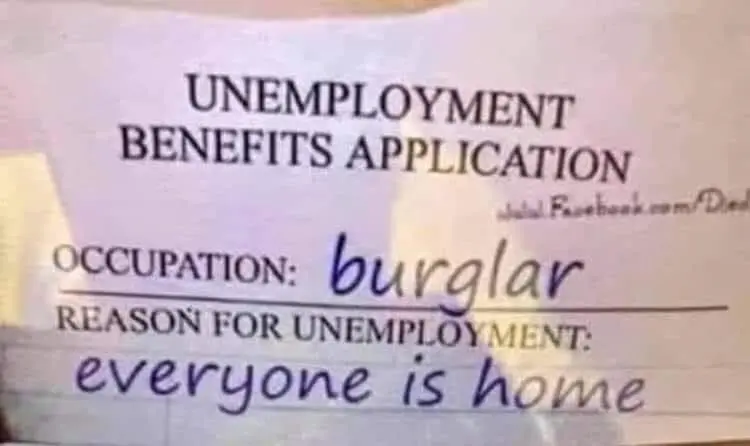 UNEMPLOYMENT
BENEFITS APPLICATION
OCCUPATION: burglar
REASON FOR UNEMPLOYMENT:
everyone is home